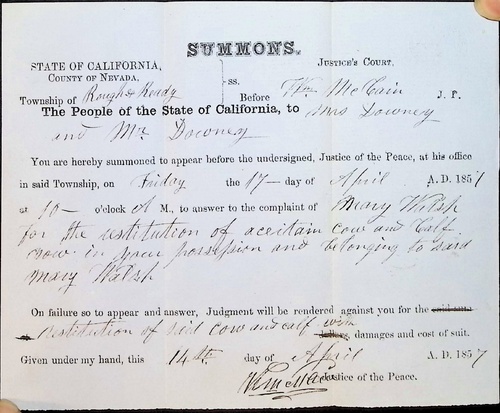 SUMMONS.
STATE OF CALIFORNIA,
COUNTY OF NEVADA,
ss.
Justice's Court,
Township of Rough & Ready
Before Wm McCain J. P.
The People of the State of California, to Mrs Downey
and Mr Downey
You are hereby summoned to appear before the undersigned, Justice of the Peace, at his office
in said Township, on Friday the 17 day of April A. D. 1857
at 10 o'clock A M., to answer to the complaint of Mary Walsh
for the restitution of a certain cow and calf
now in your possession and belonging to said
Mary Walsh
On failure so to appear and answer, Judgment will be rendered against you for the said sum
restitution of said cow and calf with dollars, damages and cost of suit.
Given under my hand, this 14th day of April A. D. 1857
Justice of the Peace.